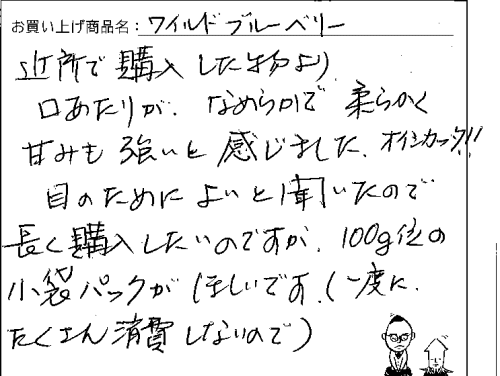 お買い上げ商品名：ワイルドブルーベリー
近所で購入した物より
口あたりが、なめらかで柔らかく
甘みも強いと感じました。オイシカッタ!!
目のためによいと聞いたので
長く購入したいのですが、100g位の
小袋パックがほしいです。(一度に
たくさん消費しないので)